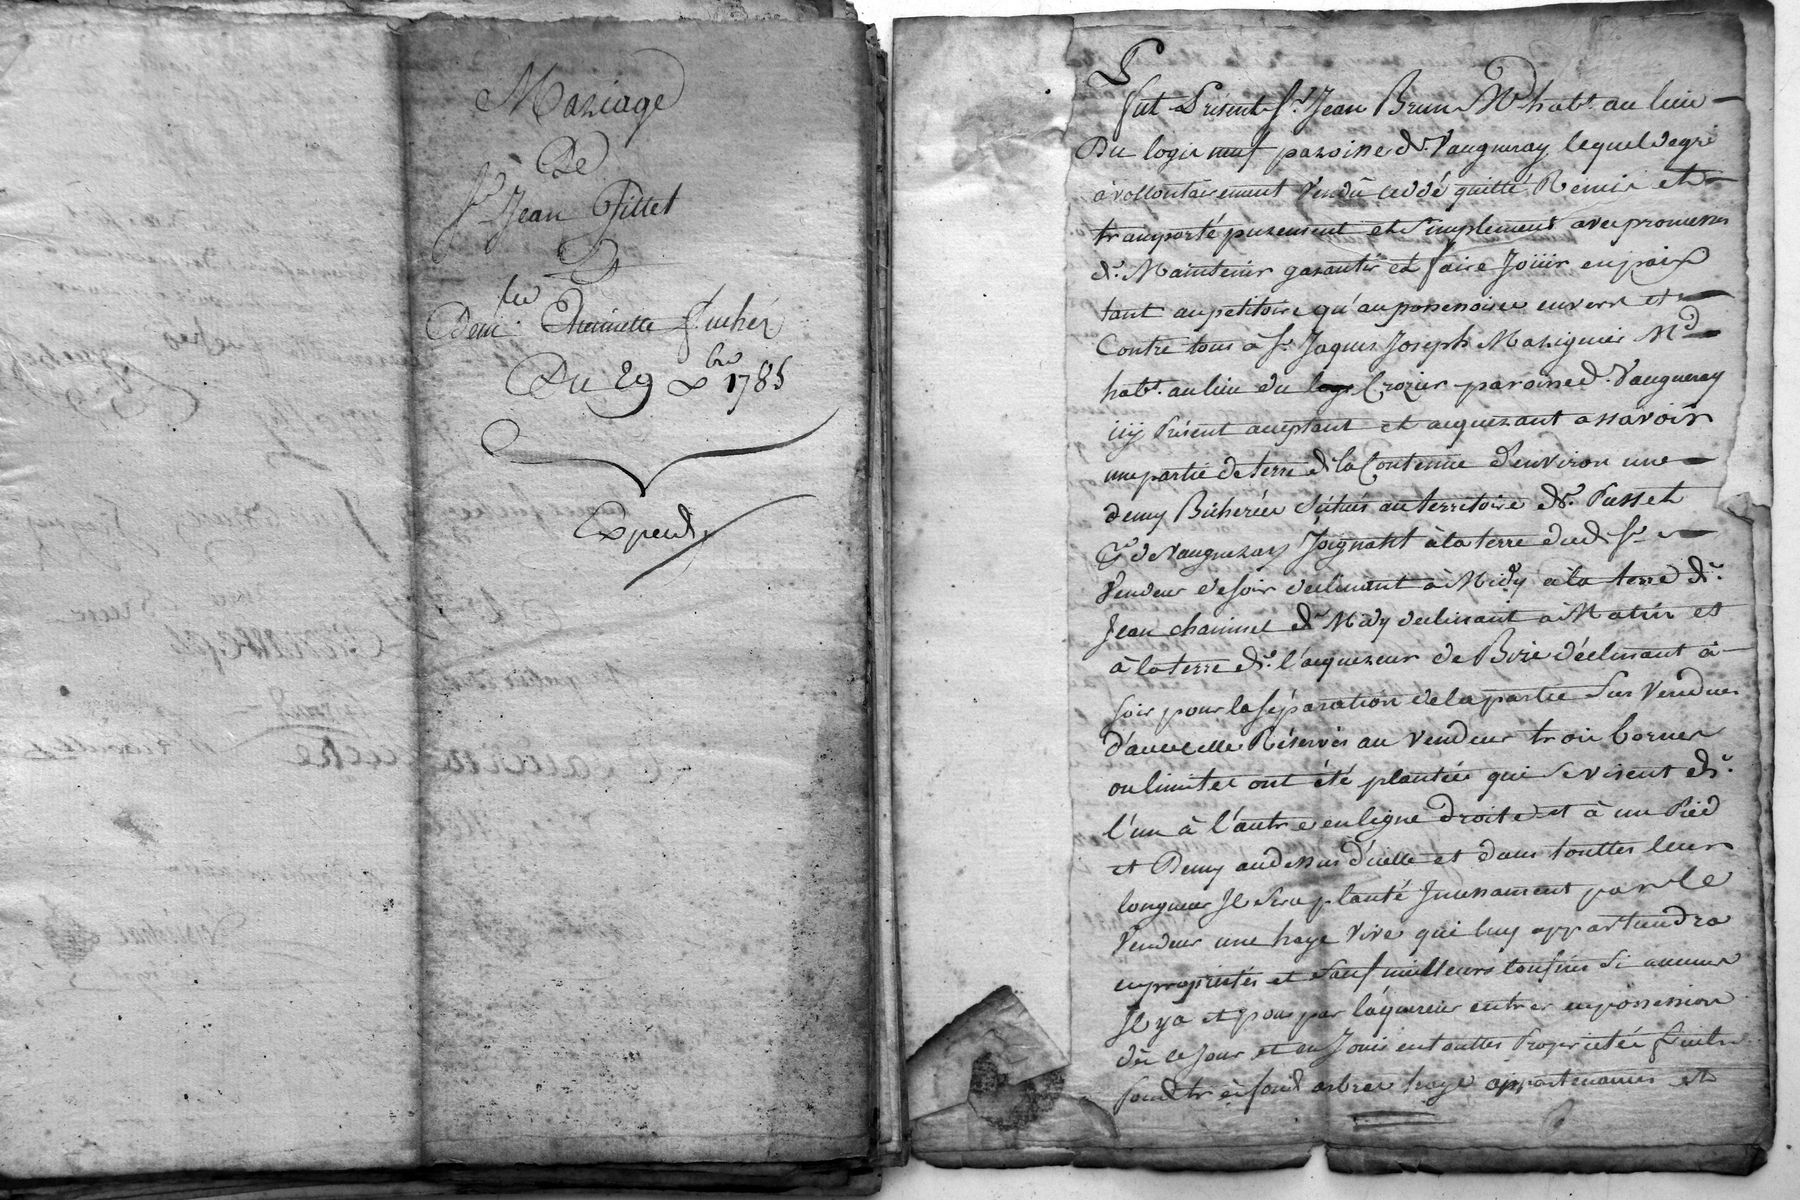 Mariage
De
Sr Jean Pittet
Et
Demlle Etiennette
Du 29 xbre 1785
Exped.
Fut Présent Sr Jean Brun Md habt. au lieu
Du logis neuf paroisse de Vaugneray lequel de gré
à vollontairement Vendû ceddé quitté Remis et
transporté purement et Simplement avec promesses
de Maintenir garantir et faire Joüir en paix
tant au petitoire qu'au possessoire envers et
Contre tous à Sr Jaques Joseph Mazignier Md
habt. au lieu du Crozier paroisse de Vaugneray
icy Présent acceptant et acquerant assavoir
une partie de terre de la Contenue d'environ une
demy Bicherée Située au territoire de Passet
Pse de Vaugneray Joignant à la terre dud. Sr
Vendeur de soir declinant à Midy à la terre de
Jean de Midy declinant à Matin et
à la terre de l'acquereur de Bize déclinant à
soir pour la séparation de la partie Sus Vendue
d'avec celle Réservée au Vendeur trois bornes
ou limites ont été plantées qui Se visent de
l'un à l'autre en ligne droite et à un Pied
et Demy au dessus d'icelle et dans touttes leurs
longueur Il Sera planté Incessament par le
Vendeur une haye Vive qui luy appartiendra
en propriétés et Sauf meilleurs Confins Si aucuns
Il y a et pour par l'aquereur entrer en possession
dès ce Jour et en Jouir en touttes Proprietés
fond très fond arbres haye appartenances et